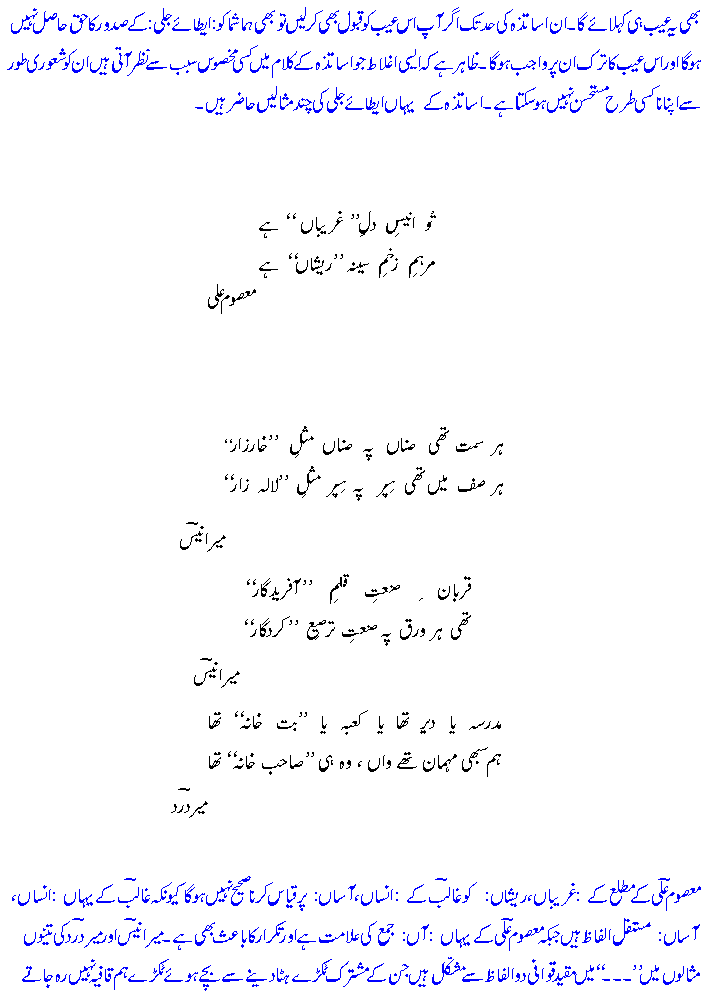 بھی یہ عیب ہی کہلائے گا۔ ان اساتذہ کی حد تک اگر آپ اس عیب کو قبول بھی کر لیں تو بھی ہما شما کو :ایطائے جلی: کے صدور کا حق حاصل نہیں
ہوگا اور اس عیب کا ترک ان پر واجب ہوگا۔ ظاہر ہے کہ ایسی اغلاط جو اساتذہ کے کلام میں کسی مخصوص سبب سے نظر آتی ہیں ان کو شعوری طور
سے اپنانا کسی طرح مستحسن نہیں ہو سکتا ہے۔ اساتذہ کے یہاں ایطائے جلی کی چند مثالیں حاضر ہیں۔
تُو انیسِ دلِ ”غریباں“ ہے
مرہمِ زخمِ سینہ ”ریشاں“ ہے
معصوم علی
ہر سمت تھی ضناں پہ ضناں مثلِ ”خارزار“
ہر صف میں تھی سِپر پہ سِپر مثلِ ”لالہ زار“
میر انیسؔ
قربان ِ صنعتِ قلمِ ”آفریدگار“
تھی ہر ورق پہ صنعتِ ترصیع ”کردگار“
میر انیسؔ
مدرسہ یا دیر تھا یا کعبہ یا ”بت خانہ“ تھا
ہم سبھی مہمان تھے واں ، وہ ہی ”صاحب خانہ“ تھا
میر دردؔ
معصوم علیؔ کے مطلع کے :غریباں، ریشاں: کو غالبؔ کے :انساں، آساں: پر قیاس کرنا صحیح نہیں ہوگا کیونکہ غالبؔ کے یہاں :انساں،
آساں: مستقل الفاظ ہیں جبکہ معصوم علیؔ کے یہاں :اں: جمع کی علامت ہے اور تکرار کا باعث بھی ہے۔ میر انیسؔ اور میر دردؔ کی تینوں
مثالوں میں ”۔۔۔“ میں مقید قوافی دو الفاظ سے مشکل ہیں جن کے مشترک ٹکڑے ہٹا دینے سے بچے ہوئے ٹکڑے ہم قافیہ نہیں رہ جاتے